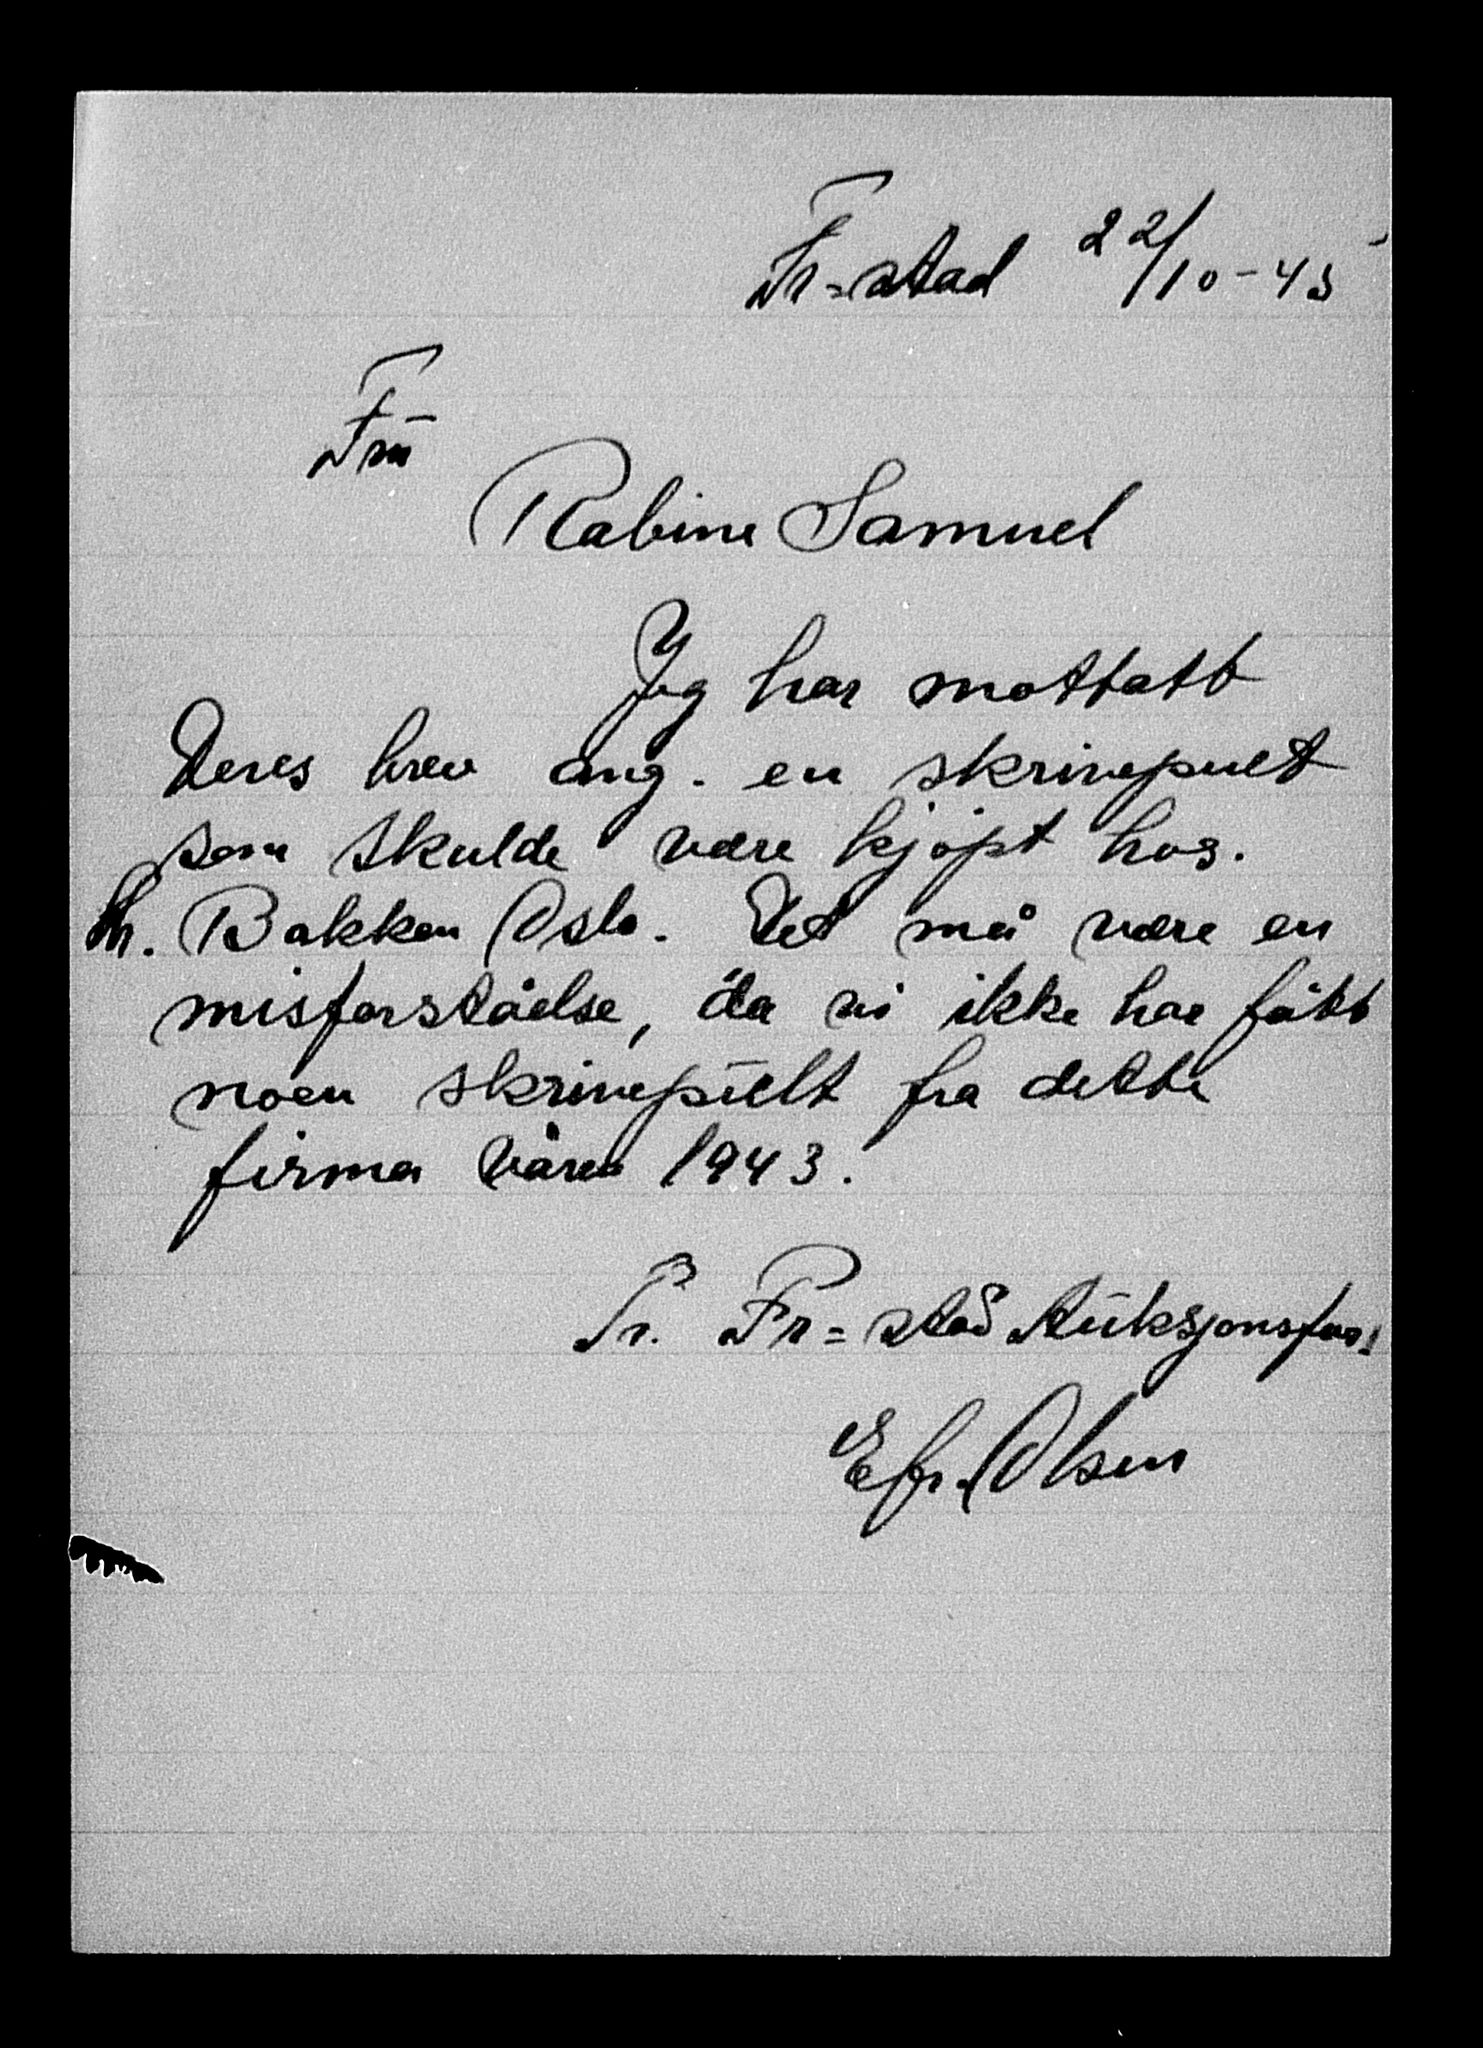 Fr-stad 22/10-45
Frū
Rabine Samuel
Jeg har mottatt
Deres brev ang. en skrivepult
som skulde være kjøpt hos.
hr. Bakken Oslo. Det må være en
misforståelse, da vi ikke har fått
noen skrivepūlt fra dette
firma våren 1943.
Pr. Fr=stad Aūksjonsfor.
Efr. Olsen